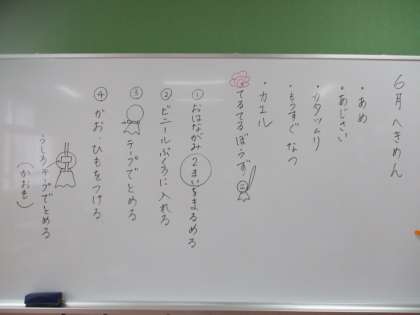 6月 へきめん
・あめ
・あじさい
・カタツムリ
・もうすぐなつ
・カエル
てるてるぼうず
①おはながみ2まいをまるめる
②ビニールぶくろに入れる
③テープでとめる
④かお、ひもをつける
・うしろテープでとめる
(かおも)